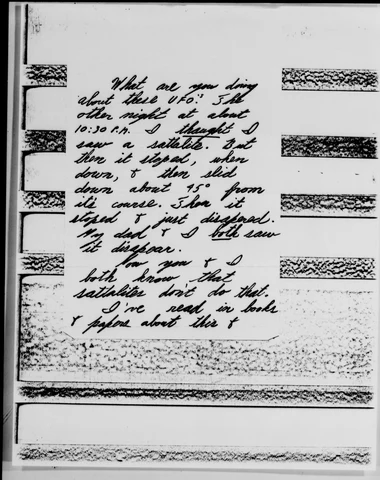 What are you doing
about these UFO's? The
other night at about
10:30 P.M. I thought I
saw a sattelite. But
then it stoped, when
down, & then slid
down about 45° from
its course. Then it
stoped & just disapered.
My dad & I both saw
it disapear.
You & I
both know that
sattalites don't do that.
I've read in books
& papers about this &